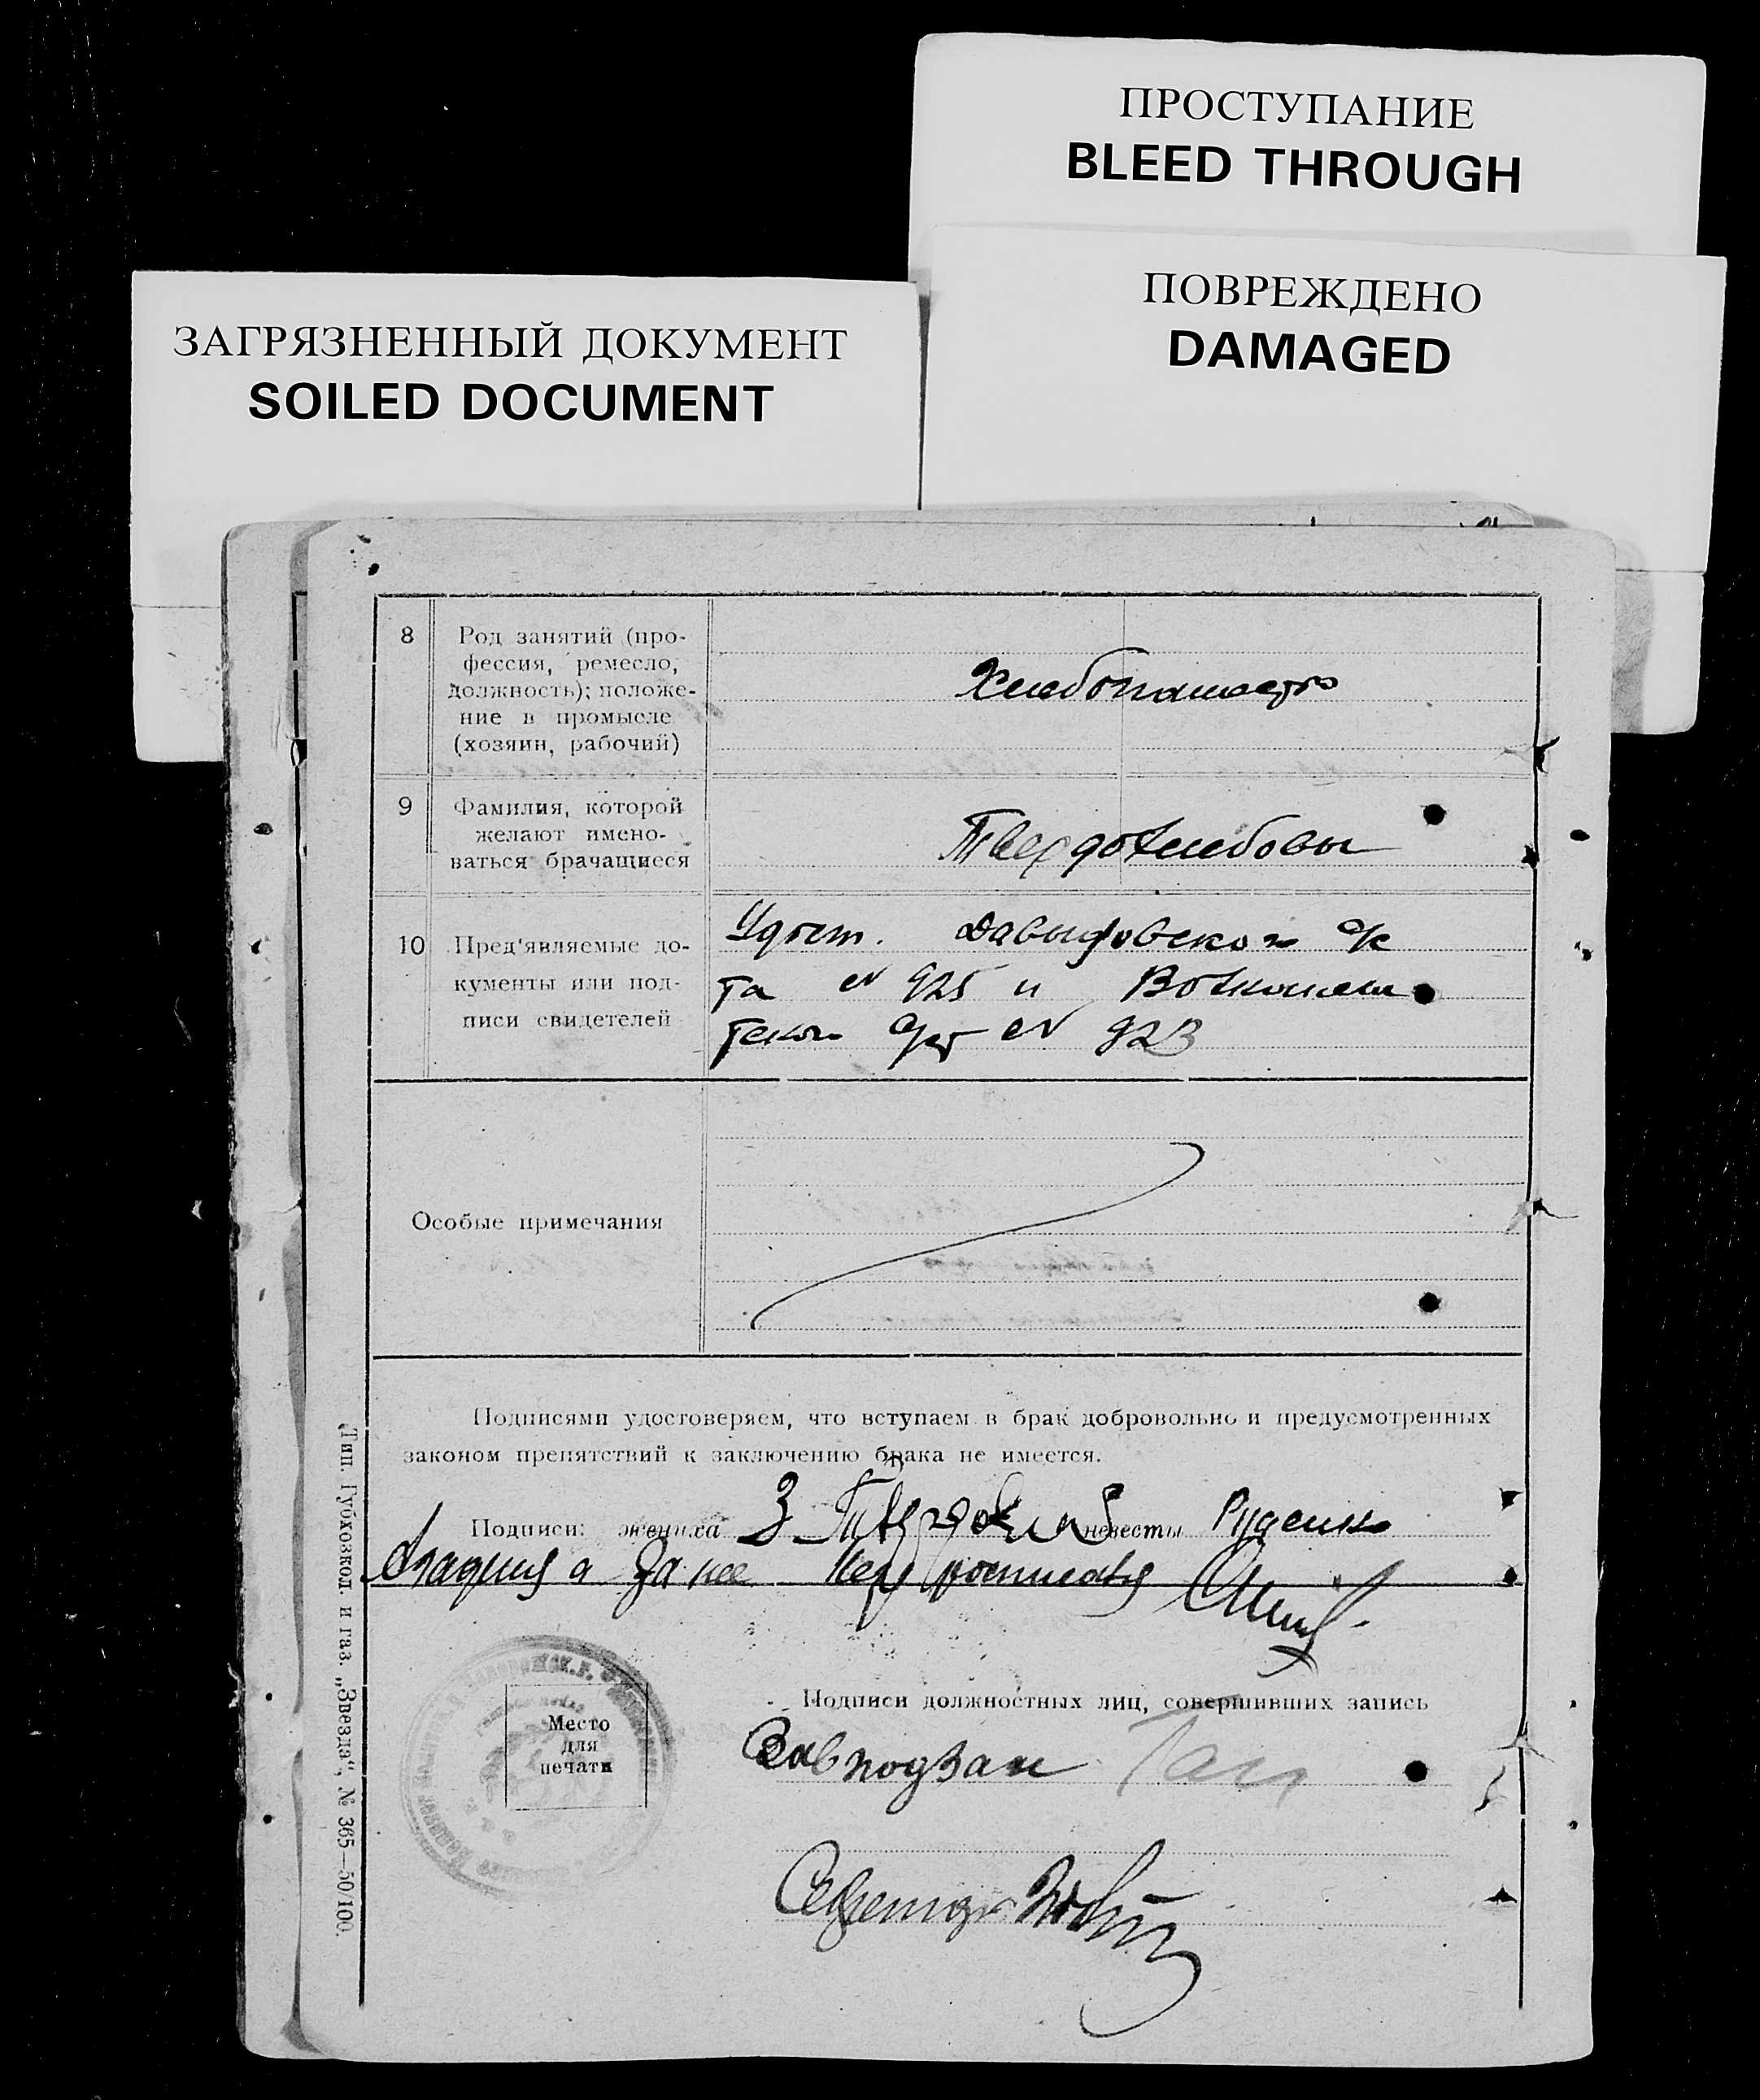 ПРОСТУПАНИЕ
BLEED THROUGH
ПОВРЕЖДЕНО
DAMAGED
ЗАГРЯЗНЕННЫЙ ДОКУМЕНТ
SOILED DOCUMENT
8 Род занятий (про-
фессия, ремесло,
должность); положе-
ние в промысле
(хозяин, рабочий)
Хлебопашество
9 Фамилия, которой
желают имено-
ваться брачащиеся
Твердохлебовы
10 Пред'являемые до-
кументы или под-
писи свидетелей
Удост. Давыдовской
та № 925 и
№ 923
Особые примечания
Подписями удостоверяем, что вступаем в брак добровольно и предусмотренных
законом препятствий к заключению брака не имеется.
Подписи: жениха З Твердохлеб невесты Руденко
а за нее
Подписи должностных лиц, совершивших запись
Место
для
печати
Завподзаг
Секретарь
Тип. Губхозкол. и газ. „Звезда", № 365—50/100.